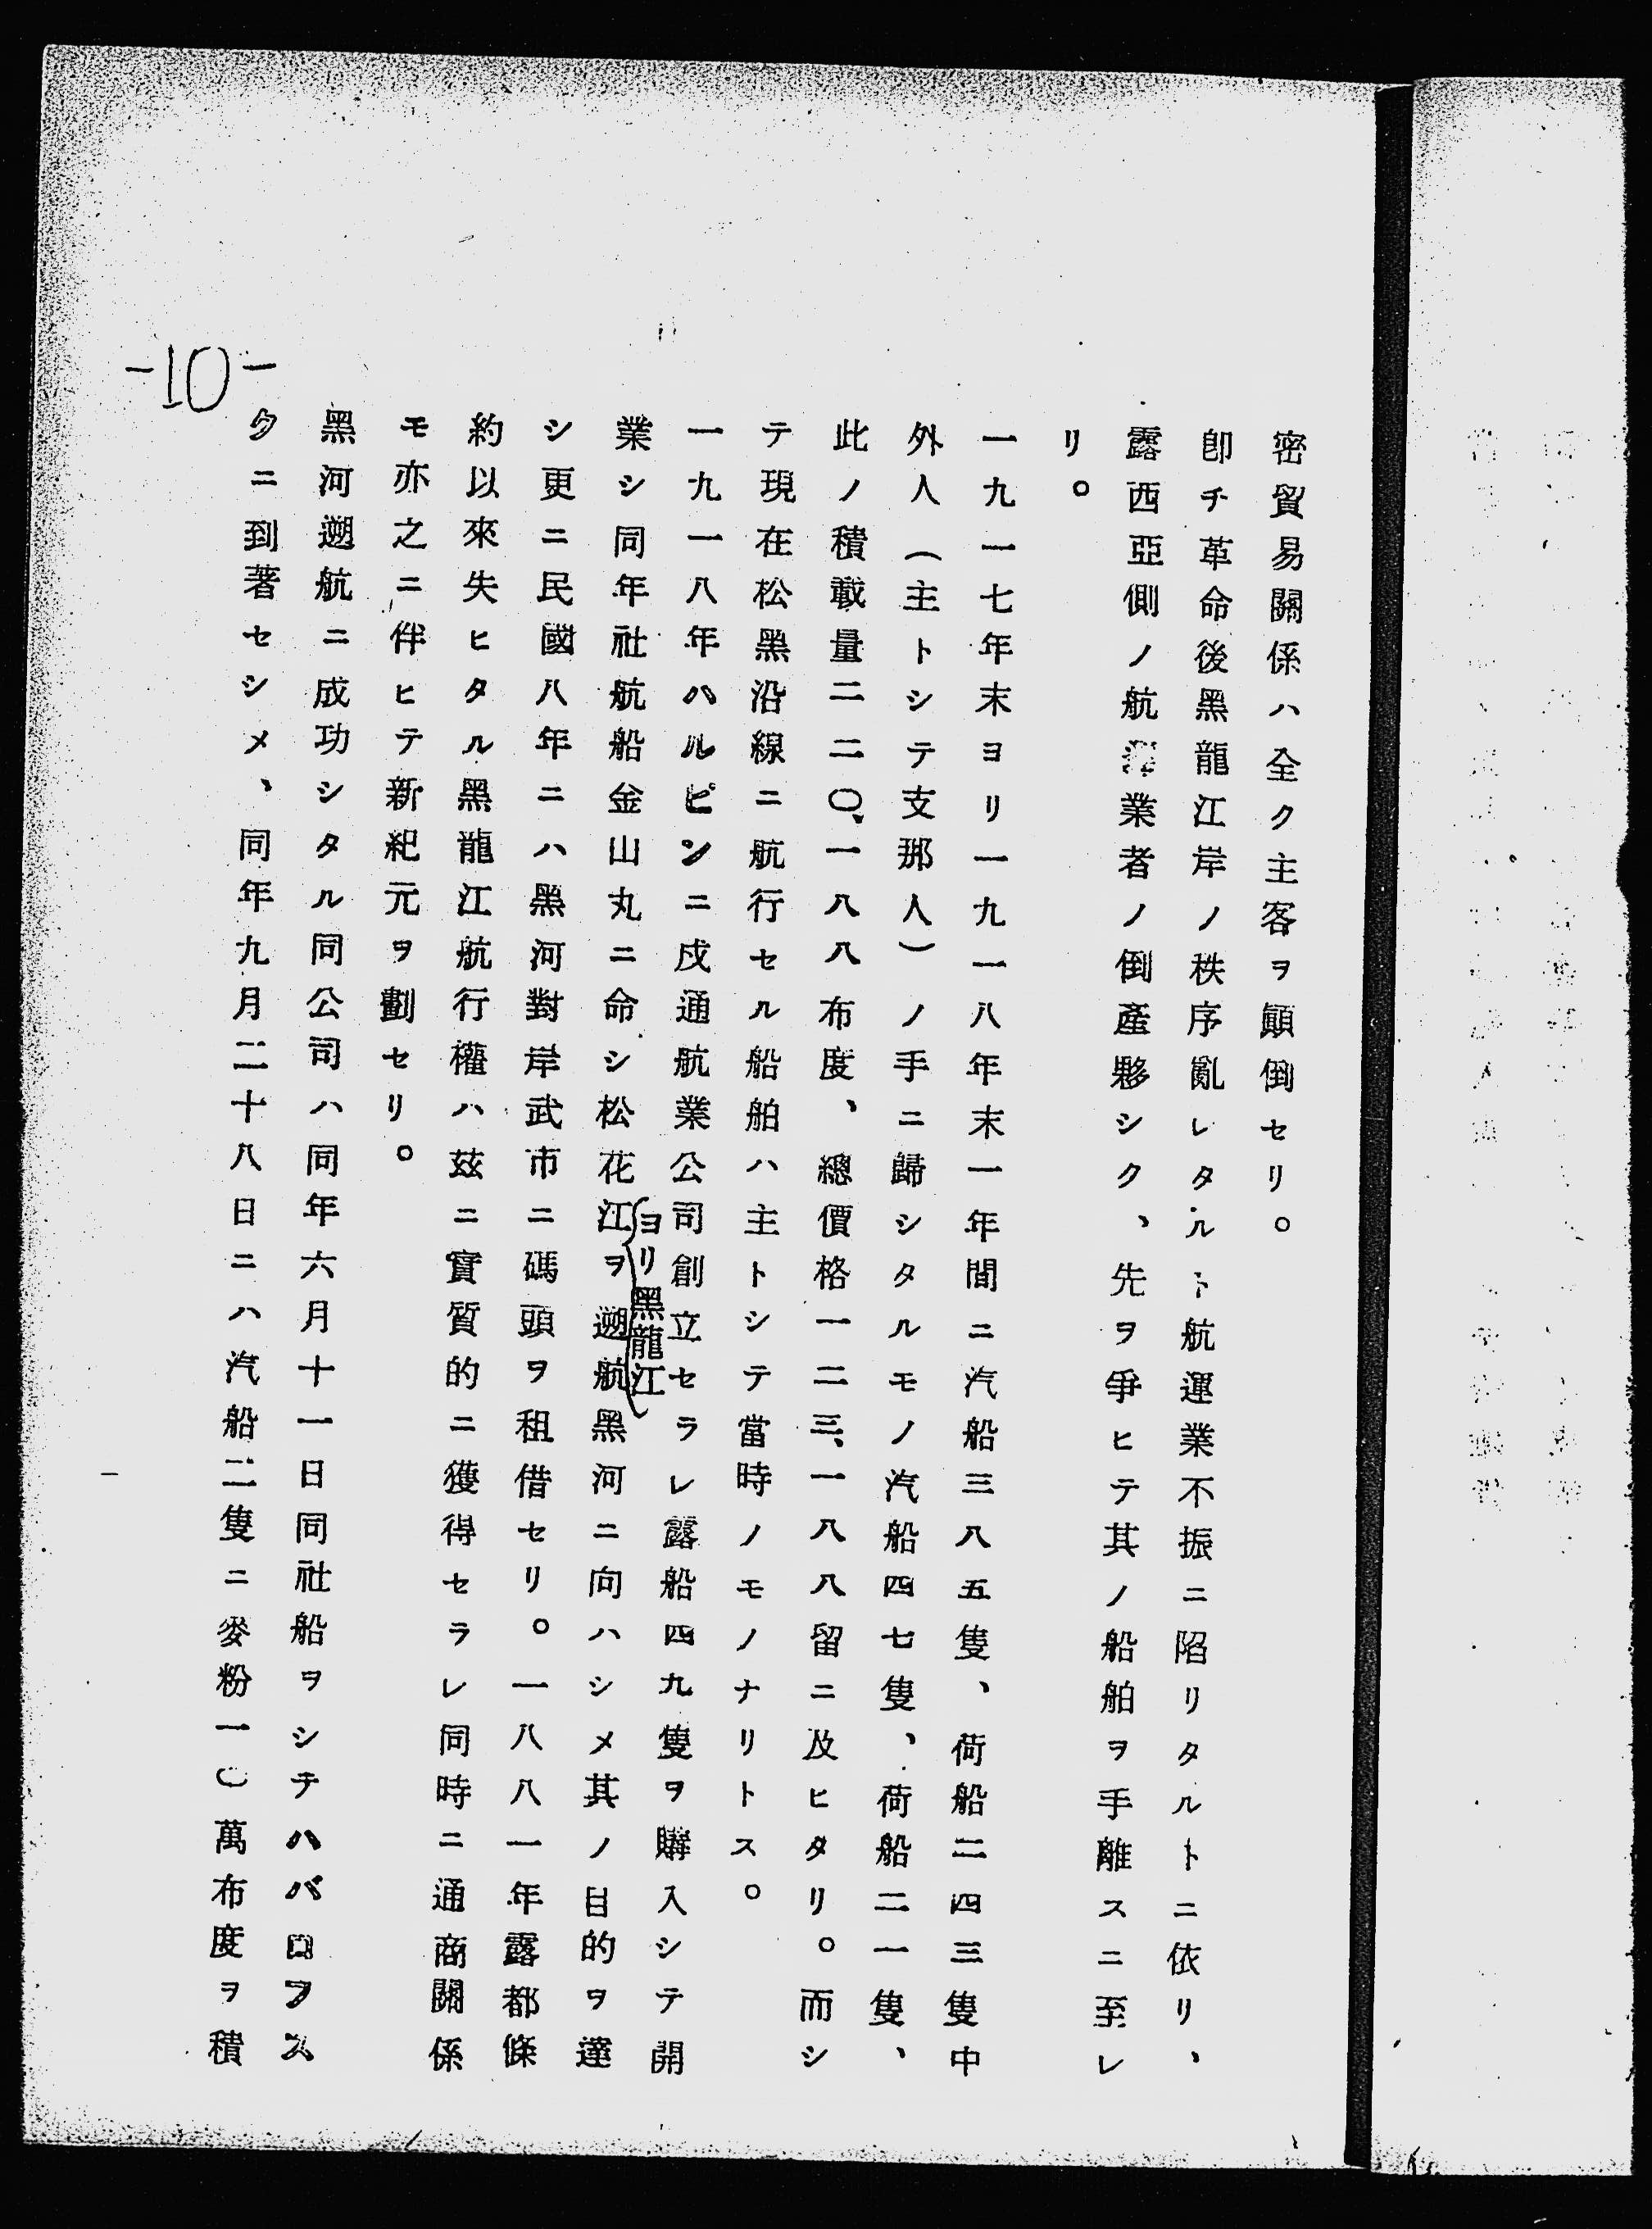 密貿易關係ハ全ク主客ヲ顚倒セリ。
卽チ革命後黑龍江岸ノ秩序亂レタルト航運業不振ニ陷リタルトニ依リ、
露西亞側ノ航業者ノ倒產夥シク、先ヲ爭ヒテ其ノ船舶ヲ手離スニ至レ
リ。
一九一七年末ヨリ一九一八年末一年間ニ汽船三八五隻、荷船二四三隻中
外人(主トシテ支那人)ノ手ニ歸シタルモノ汽船四七隻、荷船二一隻、
此ノ積載量二二〇、一八八布度、總價格一二三、一八八留ニ及ヒタリ。而シ
テ現在松黑沿線ニ航行セル船舶ハ主トシテ當時ノモノナリトス。
一九一八年ハルピンニ戍通航業公司創立セラレ露船四九隻ヲ購入シテ開
ヨリ黑龍江
業シ同年社航船金山丸ニ命シ松花江ヲ遡航黑河ニ向ハシメ其ノ目的ヲ達
シ更ニ民國八年ニハ黑河對岸武市ニ碼頭ヲ租借セリ。一八八一年露都條
約以來失ヒタル黑龍江航行權ハ玆ニ實質的ニ獲得セラレ同時ニ通商關係
モ亦之ニ伴ヒテ新紀元ヲ劃セリ。
黑河遡航ニ成功シタル同公司ハ同年六月十一日同社船ヲシテハバロフス
クニ到著セシメ、同年九月二十八日ニハ汽船二隻ニ麥粉一〇萬布度ヲ積
-10-